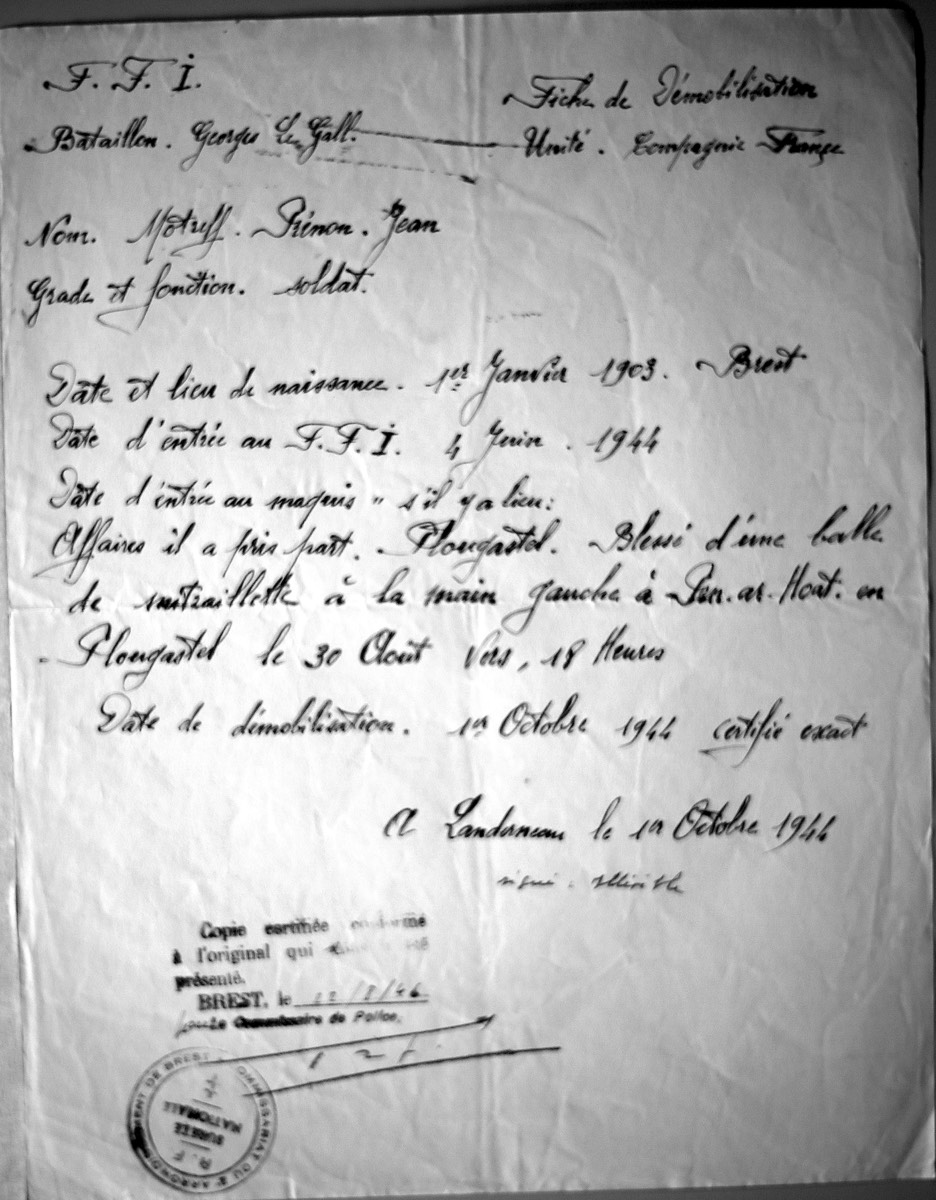 F. F. I.
Fiche de Démobilisation
Bataillon. Georges Le Gall.
Unité. Compagnie France
Nom. Motreff. Prénon. Jean
Grade et fonction. soldat.
Date et lieu de naissance. 1er Janvier 1903. Brest
Date d'entrée au F.F.I. 4 Juin. 1944
Date d'entrée au maquis " s'il y a lieu:
Affaires il a pris part. Plougastel. Blessé d'une balle
de mitraillette à la main gauche à Pen. ar. Hoat. en
Plougastel le 30 Août vers, 18 Heures
Date de démobilisation. 1er Octobre 1944 certifié exact
A Landerneau le 1er Octobre 1944
signé : illisible
Copie certifiée conforme
à l'original qui
présenté.
BREST, le 12/8/46
Le Commissaire de Police,
COMMISSARIAT DU ARRONDISSEMENT DE BREST
R. F.
SURETÉ
NATIONALE